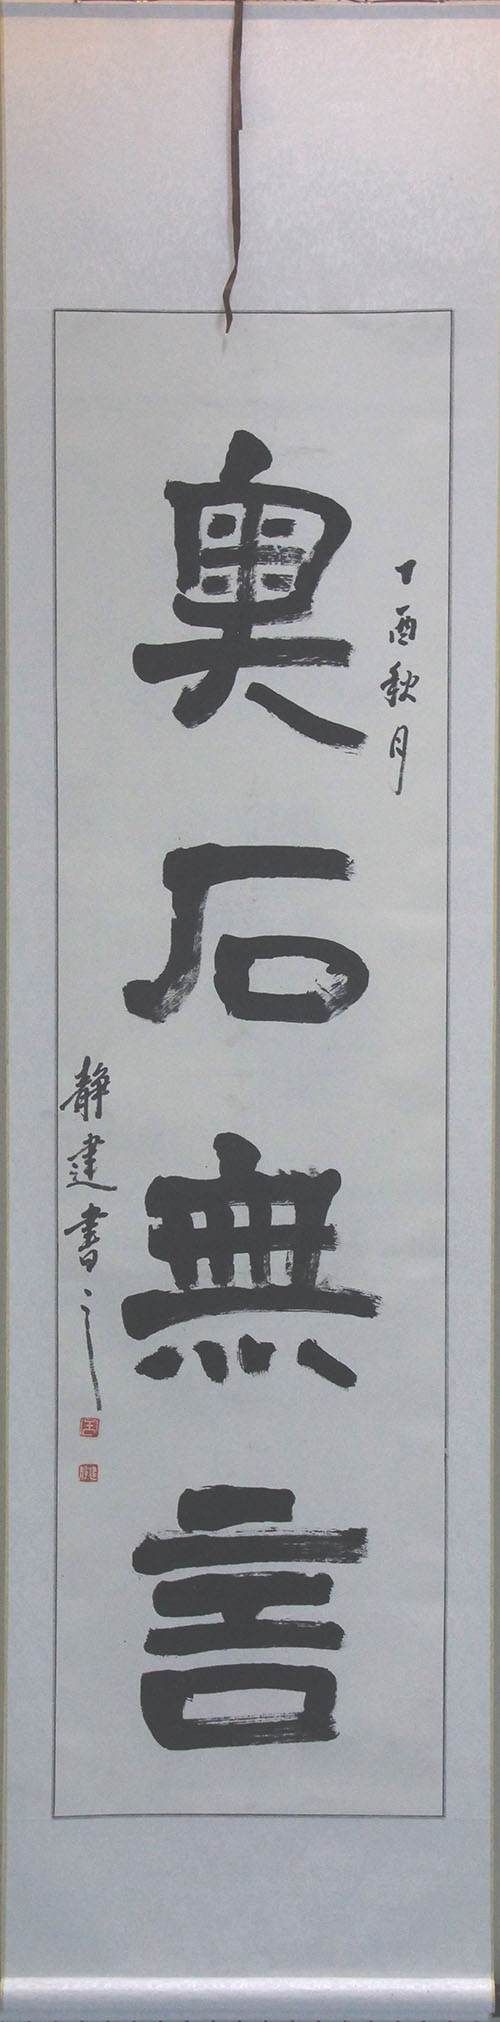 丁酉秋月
奥石無言
静建書之